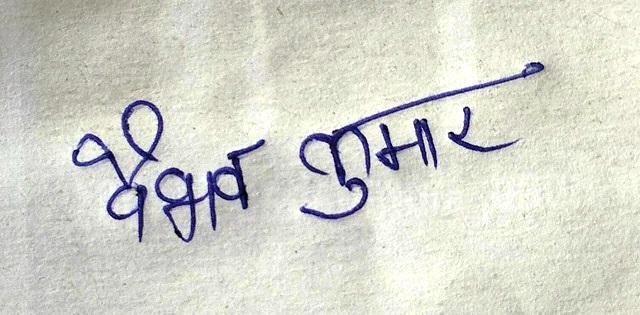 वैभव कुमार